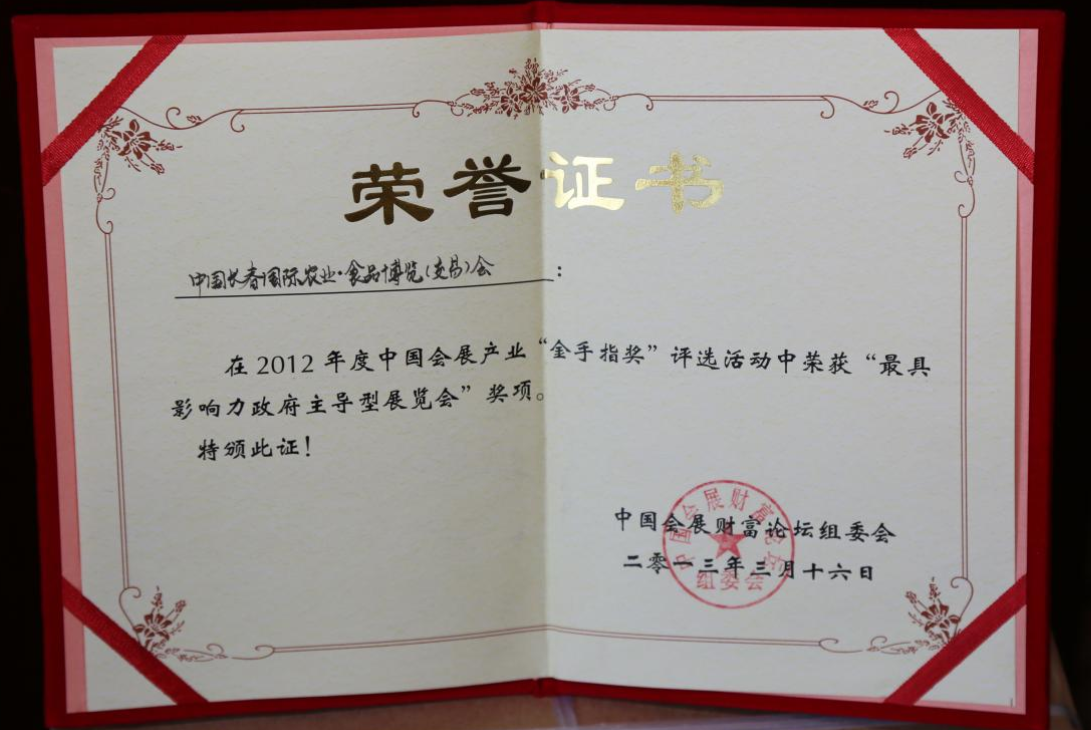 荣誉证书
中国长春国际农业·食品博览(交易)会:
在2012年度中国会展产业“金手指奖”评选活动中荣获“最具
影响力政府主导型展览会”奖项。
特颁此证!
中国会展财富论坛组委会
二零一三年三月十六日
中国会展财富论坛
组委会